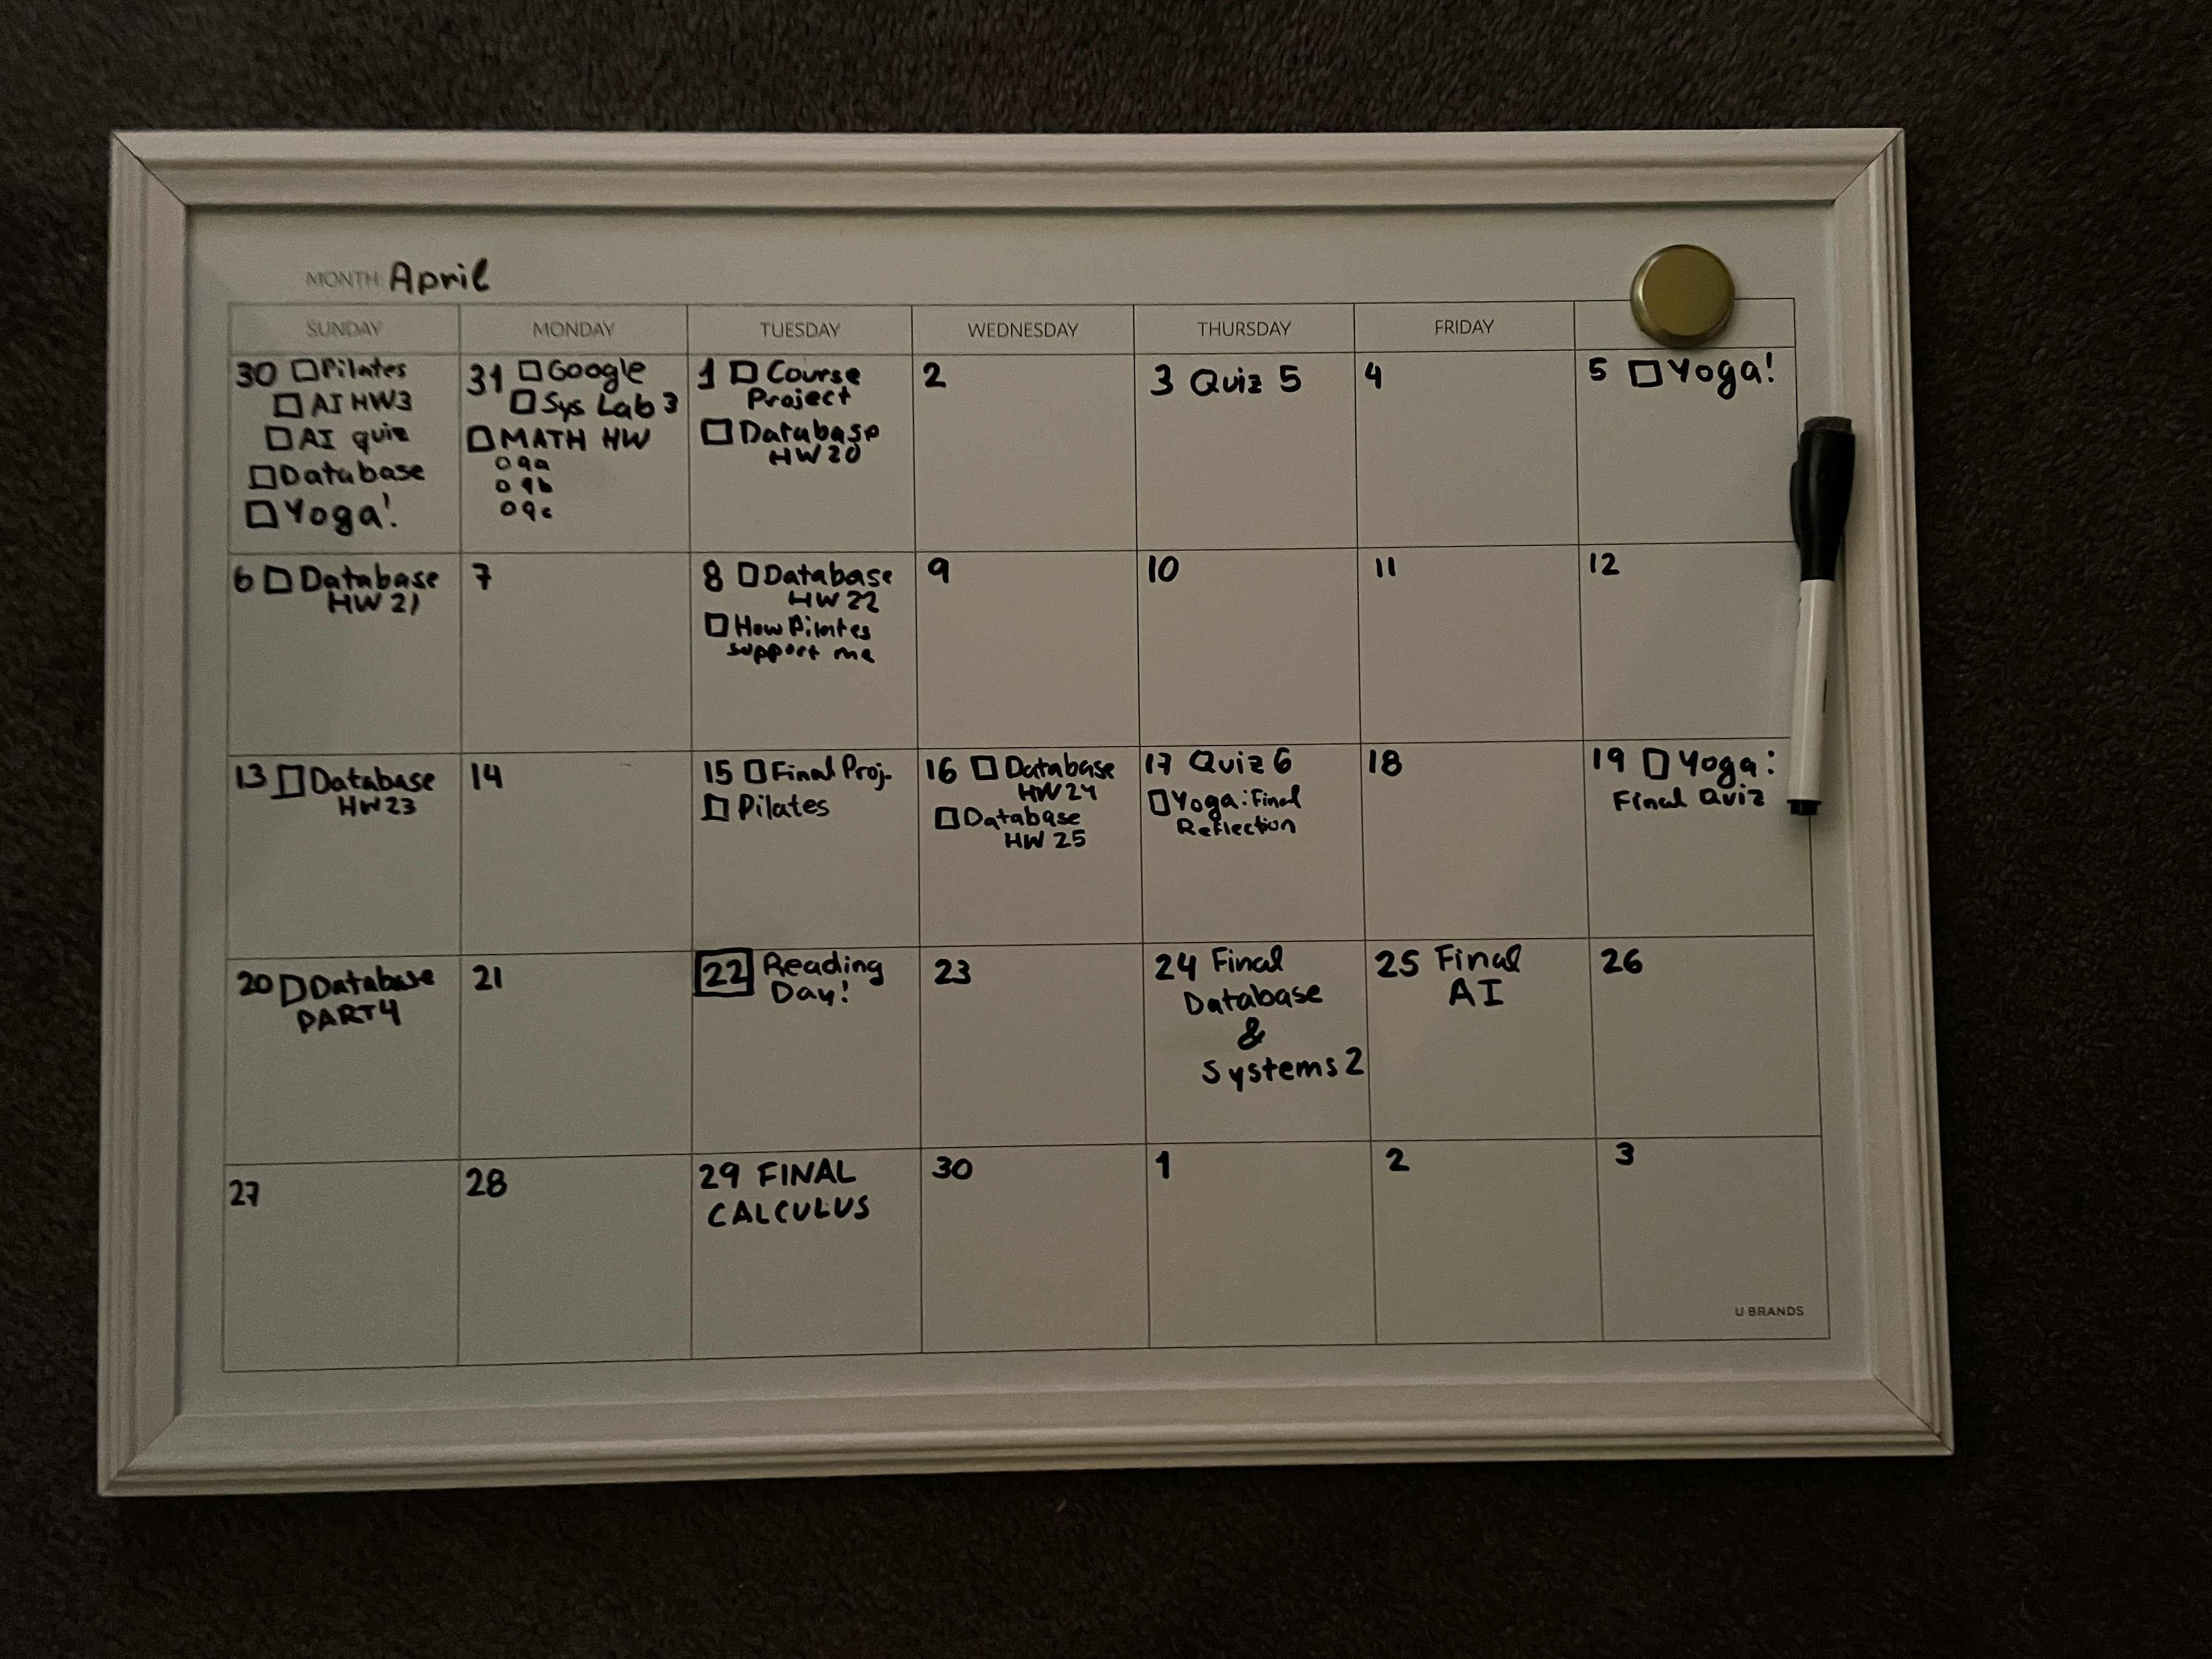 MONTH: April
SUNDAY MONDAY TUESDAY WEDNESDAY THURSDAY FRIDAY
30 Pilates
AI HW3
AI quiz
Database
Yoga!
31 Google
Sys Lab 3
MATH HW
9a
9b
9c
1 Course
Project
Database
HW 20
2
3 Quiz 5
4
5 Yoga!
6 Database
HW 21
7
8 Database
HW 22
How Pilates
support me
9
10
11
12
13 Database
HW23
14
15 Final Proj.
Pilates
16 Database
HW 24
Database
HW 25
17 Quiz 6
Yoga: Final
Reflection
18
19 Yoga:
Final Quiz
20 Database
PART4
21
22 Reading
Day!
23
24 Final
Database
&
Systems 2
25 Final
AI
26
27
28
29 FINAL
CALCULUS
30
1
2
3
U BRANDS